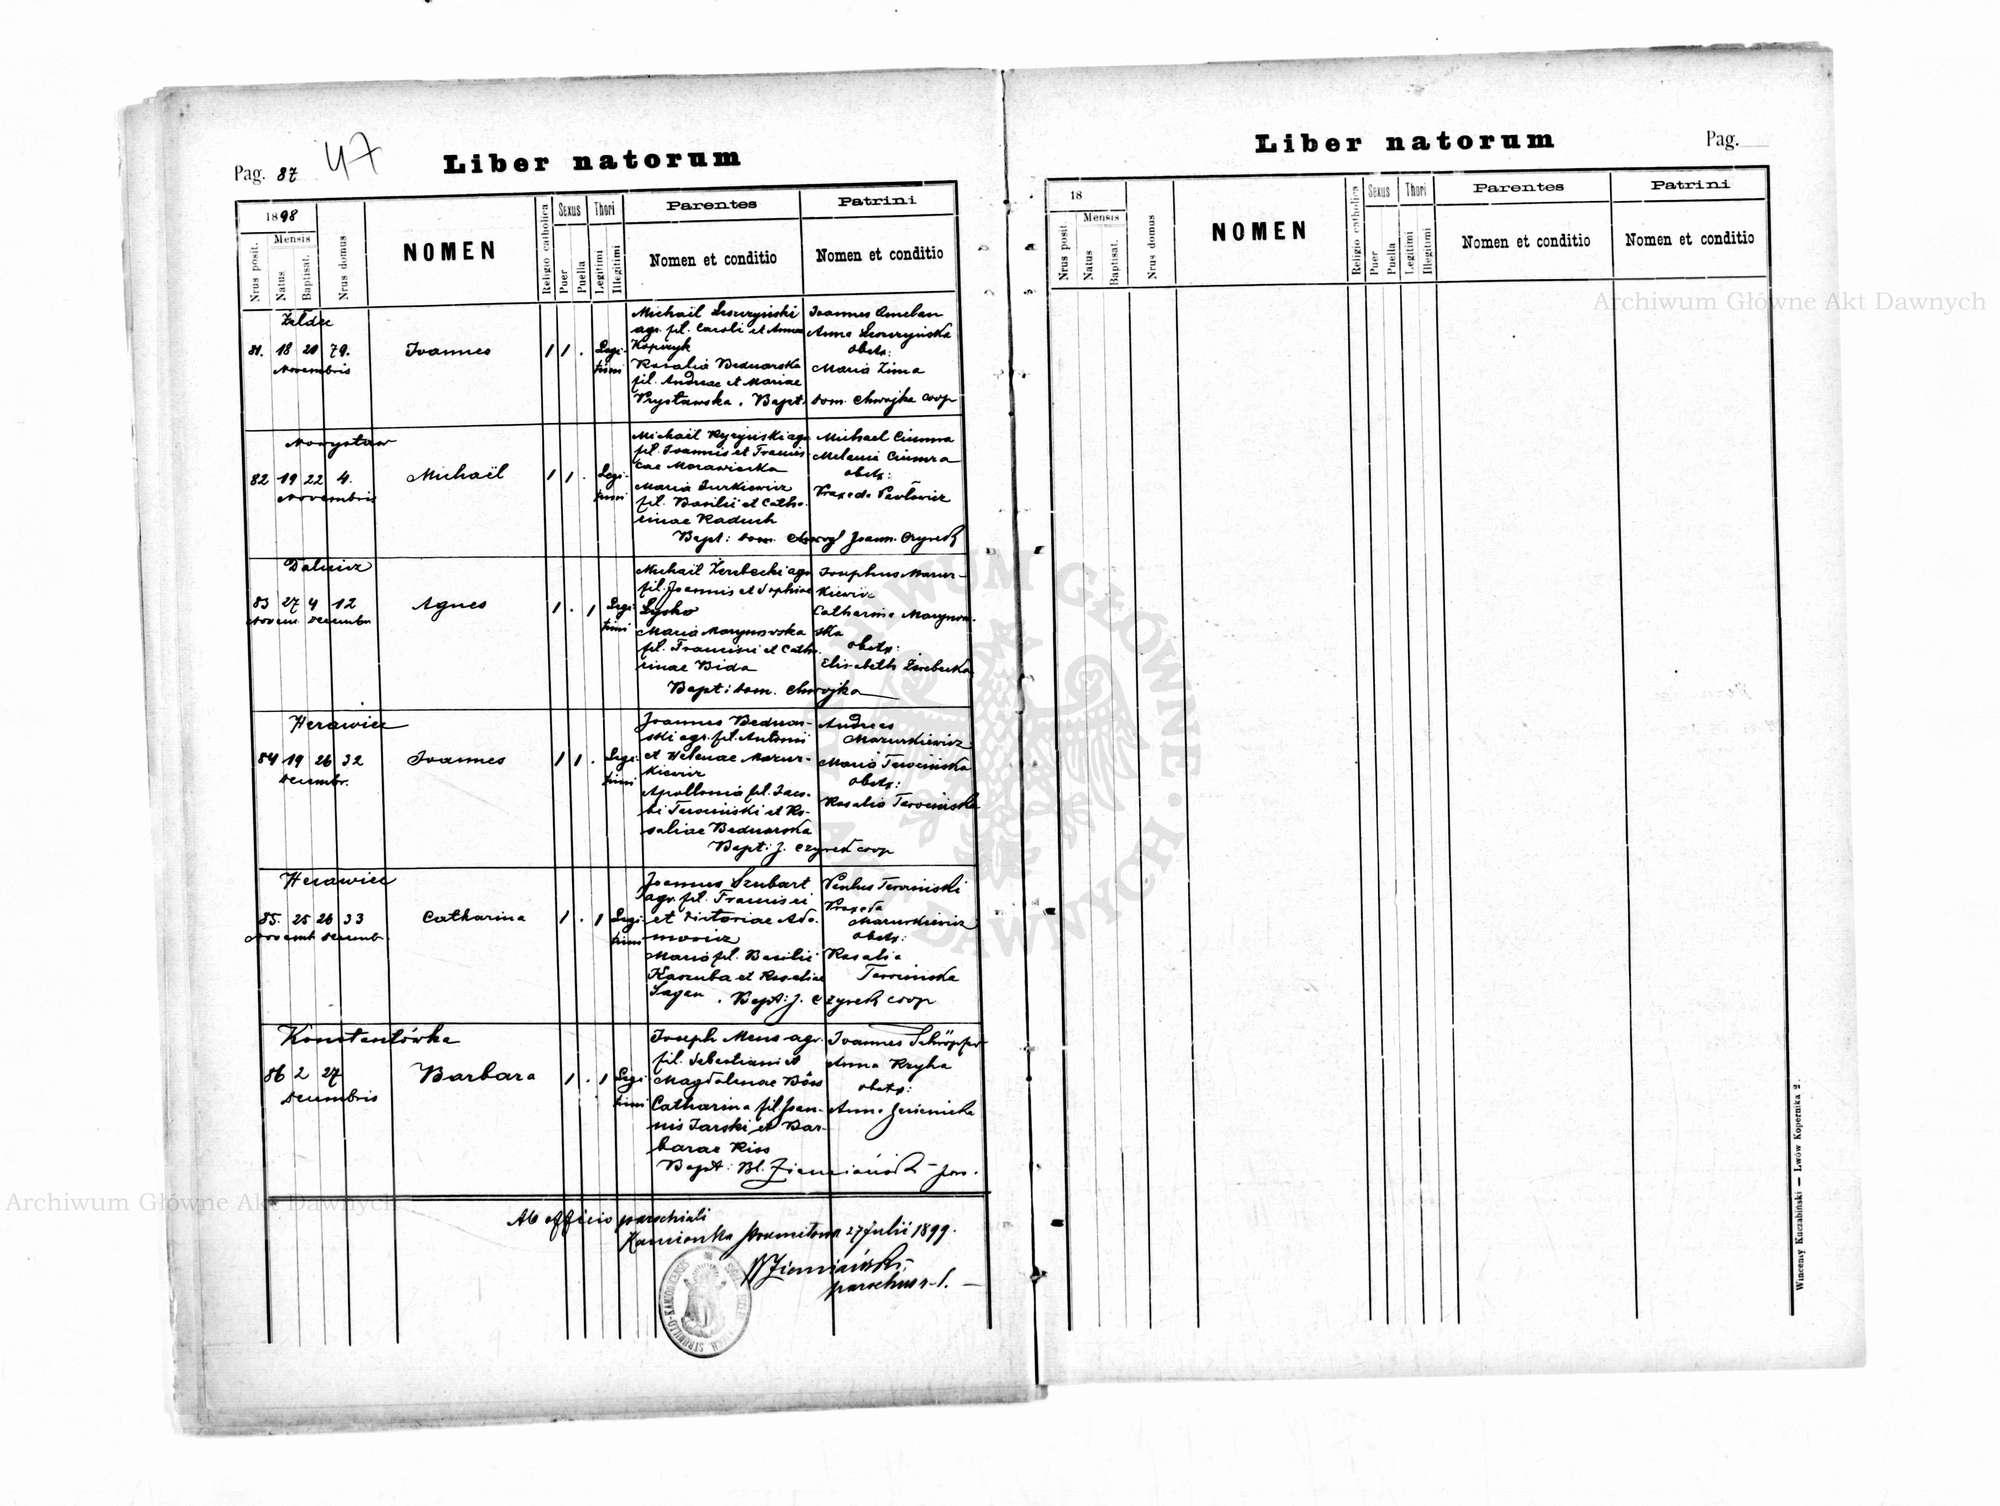 Pag. 87
47
Liber natorum
1898
Mensis
Nrus posit.
Natus
Baptisat.
Nrus domus
NOMEN
Religio catholica
Sexus
Puer
Puella
Thori
Legitimi
Illegitimi
Parentes
Nomen et conditio
Patrini
Nomen et conditio
Żeldec
81. 18 20 79.
Novembris
Joannes
1 1 .
Legi-
timi
Michaël
agr. fil. Caroli et Anna
Kopczyk
Rosalia Bednarska
fil. Andreae et Mariae
Prystawska. Bapt: dom. Chwojka coop
Joannes
Anna
obstx:
Maria Zima
82 19 22 4.
Novembris
Michaël
1 1 .
Legi-
timi
Michaël agr
fil. Joannis et Francis
cae
Maria Jurkiewicz
fil. Basilii et Catha-
rinae Raduch
Bapt: dom. Joann. Czyrek
Michael Ciumra
Melania Ciumra
obstx:
Praxeda Pawłowicz
Dalnicz
83 27 4 12
Novem. Decembr
Agnes
1 . 1
Legi-
timi
Michaël Żerebecki agr
fil. Joannis et Sophiae
Łysko
Maria Marynowska
fil. Francisci et Catha-
rinae Bida
Bapt: dom. Chwojka
Josephus Mazur-
kiewicz
Catharina Marynow-
ska
obstx:
Elisabeth Żerebecka
Herawiec
84 19 26 32
Decembr.
Joannes
1 1 .
Legi-
timi
Joannes Bednar-
ski agr. fil. Antonii
et Helenae Mazur-
kiewicz
Apollonia fil. Jaco-
bi Terociński et Ro-
saliae Bednarska
Bapt: J. Czyrek coop
Andreas
Mazurkiewicz
Maria Terocińska
obstx:
Rosalia Terocińska
Herawiec
85. 25 26 33
Novemb. Decemb.
Catharina
1 . 1
Legi-
timi
Joannes Szubart
agr. fil. Francisci
et Victoriae Ada-
mowicz
Maria fil. Basilii
Kaszuba et Rosaliae
Sagan. Bapt: J. Czyrek coop
Paulus Terociński
Praxeda
Mazurkiewicz
obstx:
Rosalia
Terocińska
Konstantówka
86 2 27
Decembris
Barbara
1 . 1
Legi
timi
Joseph Mens agr.
fil. Sebastiani et
Magdalenae Böss
Catharina fil. Joan-
nis Jarski et Bar-
barae Riss
Bapt: Bl. Ziemiański par.
Joannes Schröpfer
Anna Kryha
obstx:
Anna
Ab officio parochiali
Kamionka Strumiłowa 27 Julii 1899.
Ziemiański
parochus r. l.
Liber natorum
Pag.
18
Mensis
Nrus posit.
Natus
Baptisat.
Nrus domus
NOMEN
Religio catholica
Sexus
Puer
Puella
Thori
Legitimi
Illegitimi
Parentes
Nomen et conditio
Patrini
Nomen et conditio
Wincenty Kuczabiński — Lwów Kopernika 2.
Archiwum Główne Akt Dawnych
Archiwum Główne Akt Dawnych
ARCHIWUM GŁÓWNE AKT DAWNYCH